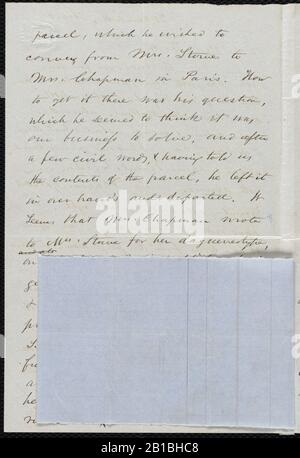 parcel, which he wished to
convey from Mrs. Stowe to
Mrs. Chapman in Paris. How
to get it there was his question,
which he seemed to think it was
our business to solve, and after
a few civil words, (having told us
the contents of the parcel, he left it
in our hands and departed. It
seems that Mrs. Chapman wrote
to Mrs. Stowe for her daguerreotype,
alamy
Image ID: 2B1BHC8
www.alamy.com